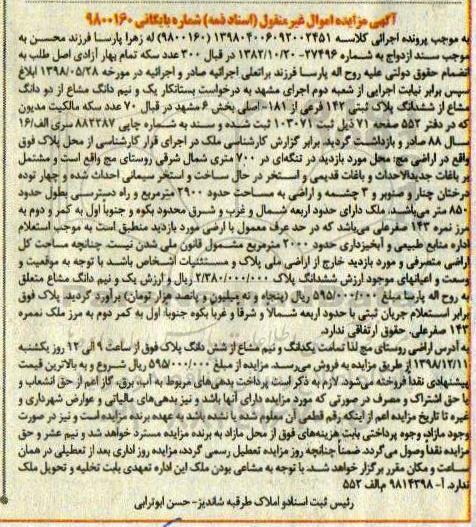 آگهی مزایده اموال غیر منقول (اسناد ذمه) شماره بایگانی ۹۸۰۰۱۶۰
به موجب پرونده اجرائی کلاسه ۱۳۹۸۰۴۰۰۶۰۹۲۰۰۲۴۵۱ (۹۸۰۰۱۶۰) له زهرا پارسا فرزند محسن به
موجب سند ازدواج به شماره ۲۷۴۹۶-۱۳۸۲/۱۰/۲۰ در قبال ۳۰۰ عدد سکه تمام بهار آزادی اصل طلب به
انضمام حقوق دولتی علیه روح اله پارسا فرزند براتعلی اجرائیه صادر و اجرائیه در مورخه ۱۳۹۸/۰۵/۲۸ ابلاغ
سپس برابر نیابت اجرایی از شعبه دوم اجرای مشهد به درخواست بستانکار یک و نیم دانگ مشاع از دو دانگ
مشاع از ششدانگ پلاک ثبتی ۱۴۲ فرعی از ۱۸۱- اصلی بخش ۶ مشهد در قبال ۷۰ عدد سکه مالکیت مدیون
که در دفتر ۵۵۲ صفحه ۷۱ ذیل ثبت ۱۰۳۰۷۱ ثبت شده و سند به شماره چاپی ۸۸۲۳۸۷ سری الف/۱۶
سال ۸۸ صادر و بازداشت گردید. برابر گزارش کارشناسی ملک در اجرای قرار کارشناسی از محل پلاک فوق
واقع در اراضی مج: محل مورد بازدید در تنگه‌ای در ۷۰۰ متری شمال شرقی روستای مج واقع است و مشتمل
بر باغات جدیدالاحداث و باغات قدیمی و استخر در حال ساخت و استخر سیمانی احداث شده و چهار توده
درختان چنار و صنوبر و ۳ چشمه و اراضی به مساحت حدود ۲۹۰۰ مترمربع و راه دسترسی بطول حدود
۸۵۰ متر می‌باشد. ملک دارای حدود اربعه شمال و غرب و شرق محدود بکوه و جنوباً اول به کمر و دوم به
مرز نمره ۱۴۳ صفرعلی می‌باشد که در حد عرف معمول با ارضی مورد بازدید منطبق است به موجب استعلام
اداره منابع طبیعی و آبخیزداری حدود ۲۰۰۰ مترمربع مشمول قانون ملی شدن نیست. چنانچه مساحت کل
اراضی متصرفی و مورد بازدید خارج از اراضی ملی پلاک و مستثنیات اشخاص باشد با توجه به موقعیت و
وسعت و اعیانهای موجود ارزش ششدانگ پلاک ۲/۳۸۰/۰۰۰/۰۰۰ ریال و ارزش یک و نیم دانگ مشاع متعلق
به روح اله پارسا مبلغ ۵۹۵/۰۰۰/۰۰۰ ریال (پنجاه و نه میلیون و پانصد هزار تومان) برآورد گردید. پلاک فوق
برابر استعلام جریان ثبتی با حدود اربعه شمالاً و شرقا و غربا بکوه جنوبا: اول به کمر دوم به مرز ملک نممره
۱۴۳ صفرعلی. حقوق ارتفاقی ندارد.
به آدرس اراضی روستای مج لذا تمامت یکدانگ و نیم مشاع از شش دانگ پلاک فوق از ساعت ۹ الی ۱۲ روز یکشنبه
۱۳۹۸/۱۲/۱۱ از طریق مزایده به فروش می‌رسد. مزایده از مبلغ ۵۹۵/۰۰۰/۰۰۰ ریال شروع و به بالاترین قیمت
پیشنهادی نقداً فروخته می‌شود. لازم به ذکر است پرداخت بدهی‌های مربوط به آب، برق، گاز اعم از حق انشعاب و
یا حق اشتراک و مصرف در صورتی که مورد مزایده دارای آنها باشد و نیز بدهی‌های مالیاتی و عوارض شهرداری و
غیره تا تاریخ مزایده اعم از اینکه رقم قطعی آن معلوم شده یا نشده باشد به عهده برنده مزایده است و نیز در صورت
وجود مازاد، وجوه پرداختی بابت هزینه‌های فوق از محل مازاد به برنده مزایده مسترد خواهد شد و نیم عشر و حق
مزایده نقداً وصول می‌گردد. ضمناً چنانچه روز مزایده تعطیل رسمی گردد، مزایده روز اداری بعد از تعطیلی در همان
ساعت و مکان مقرر برگزار خواهد شد. با توجه به مشاعی بودن ملک این اداره تعهدی بابت تخلیه و تحویل ملک
ندارد. آ- ۹۸۱۴۳۹۸ م.الف ۵۵۲
رئیس ثبت اسنادو املاک طرقبه شاندیز- حسن ابوترابی